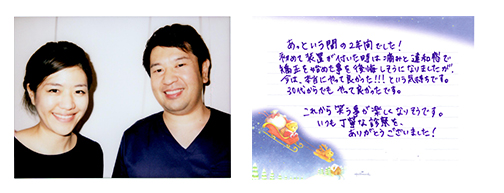 あっという間の2年間でした!
初めて装置が付いた時は痛みと違和感で
矯正を始めた事を後悔しそうになりましたが、
今は、本当にやって良かった!!!という気持ちです。
30代からでも やって良かったです。
これから笑う事が楽しくなりそうです。
いつも丁寧な診察を、
ありがとうございました!